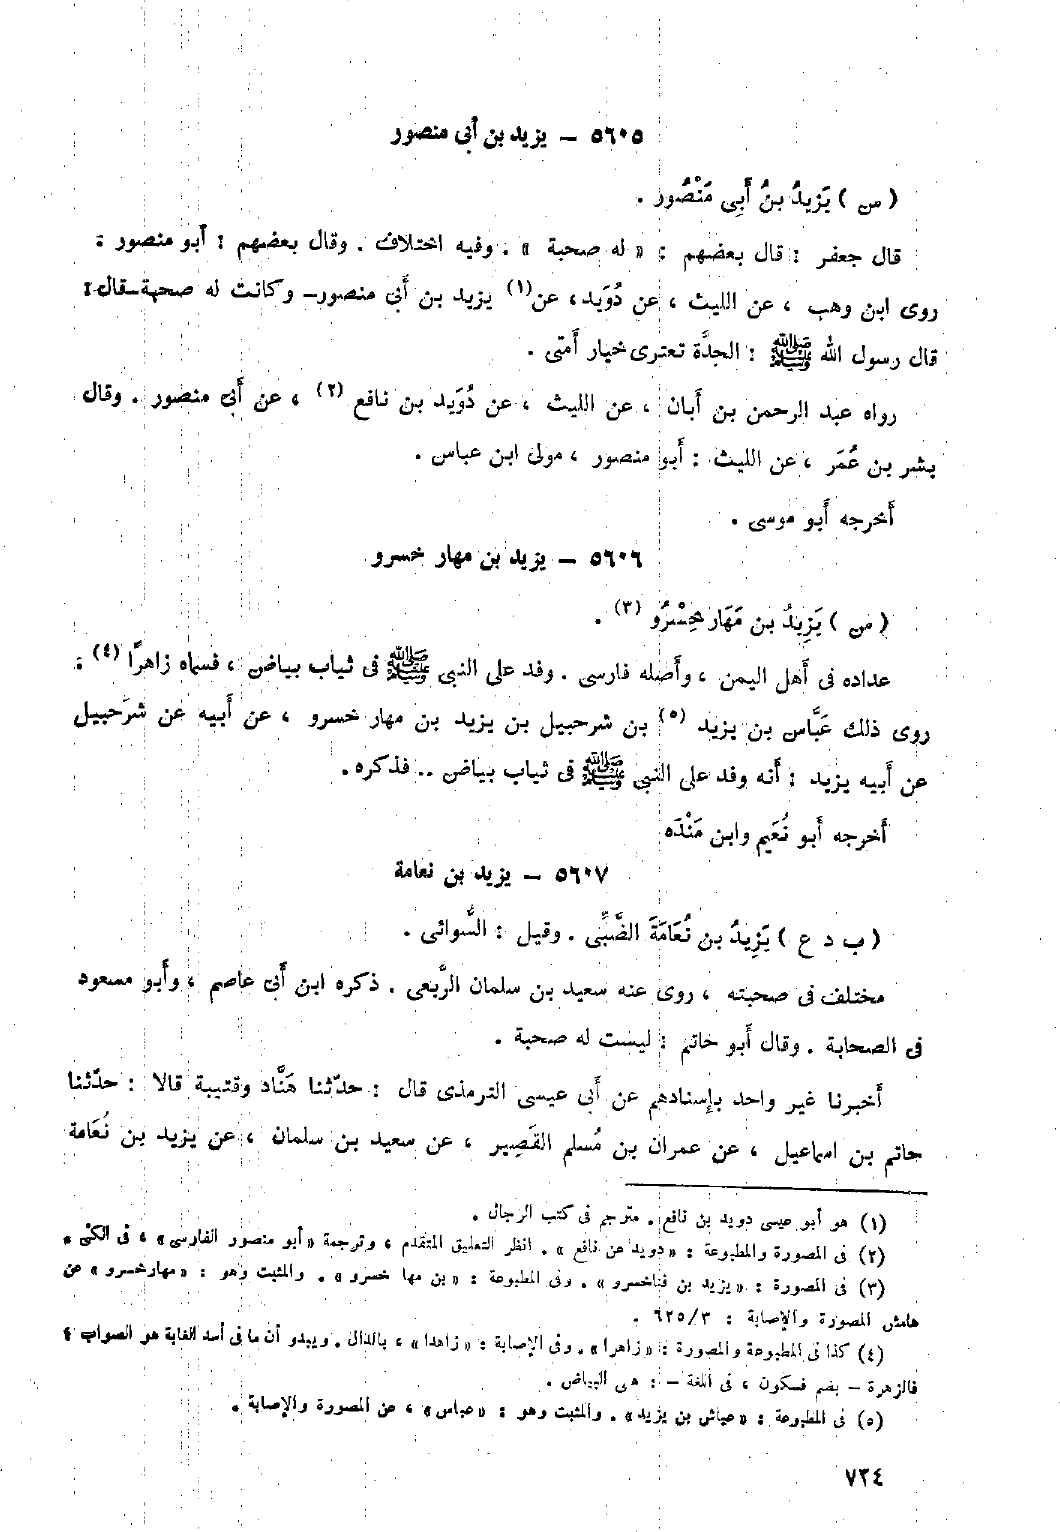 ٥٦٠٥ – يزيد بن أبى منصور
( س ) يَزِيدُ بنُ أَبِى مَنْصُور .
قال جعفر : قال بعضهم : « له صحبة » . وفيه اختلاف . وقال بعضهم : أبو منصور .
روى ابن وهب ، عن الليث ، عن دُوَيد ، عن (١) يزيد بن أَبى منصور – وكانت له صحبة – قال :
قال رسول الله ﷺ : الحِدَّة تعترى خيار أُمتى .
رواه عبد الرحمن بن أَبان ، عن الليث ، عن دُوَيد بن نافع (٢) ، عن أَبى منصور . وقال
بشر بن عُمَر ، عن الليث : أَبو منصور ، مولى ابن عباس .
أَخرجه أَبو موسى .
٥٦٠٦ – يزيد بن مهار خسرو
( س ) يَزِيدُ بن مَهَار خِسْرُو (٣) .
عداده فى أَهل اليمن ، وأَصله فارسى . وفد على النبى ﷺ فى ثياب بياض ، فسماه زاهرًا (٤) .
روى ذلك عَبَّاس بن يزيد (٥) بن شرحبيل بن يزيد بن مهار خسرو ، عن أَبيه عن شرَحبيل
عن أَبيه يزيد : أَنه وفد على النبى ﷺ فى ثياب بياض .. فذكره .
أَخرجه أَبو نُعَيم وابن مَنْدَه
٥٦٠٧ – يزيد بن نعامة
( ب د ع ) يَزِيدُ بن نُعَامَةَ الضَّبِّى . وقيل : السُّوائى .
مختلف فى صحبته ، روى عنه سعيد بن سلمان الرَّبعى . ذكره ابن أَبى عاصم ، وأَبو مسعود
فى الصحابة . وقال أَبو حاتم : ليست له صحبة .
أَخبرنا غير واحد بإِسنادهم عن أَبى عيسى الترمذى قال : حدّثنا هَنَّاد وقتيبة قالا : حدّثنا
حاتم بن اسماعيل ، عن عمران بن مُسلم القَصِير ، عن سعيد بن سلمان ، عن يزيد بن نُعَامة
(١) هو أبو عيسى دويد بن نافع . مترجم فى كتب الرجال .
(٢) فى المصورة والمطبوعة : « دويد عن نافع » . انظر التعليق المتقدم ، وترجمة « أبو منصور الفارسى » ، فى الكنى .
(٣) فى المصورة : « يزيد بن فناخسرو » . وفى المطبوعة : « بن مها خسرو » . والمثبت وهو : « مهارخسرو » عن
هامش المصورة والإصابة : ٦٢٥/٣ .
(٤) كذا فى المطبوعة والمصورة : « زاهرا » . وفى الإصابة : « زاهدا » ، بالدال . ويبدو أن ما فى أسد الغابة هو الصواب ؛
فالزهرة – بضم فسكون ، فى اللغة – : هى البياض .
(٥) فى المطبوعة : « عياش بن يزيد » . والمثبت وهو : « عباس » ، عن المصورة والإصابة .
٧٣٤